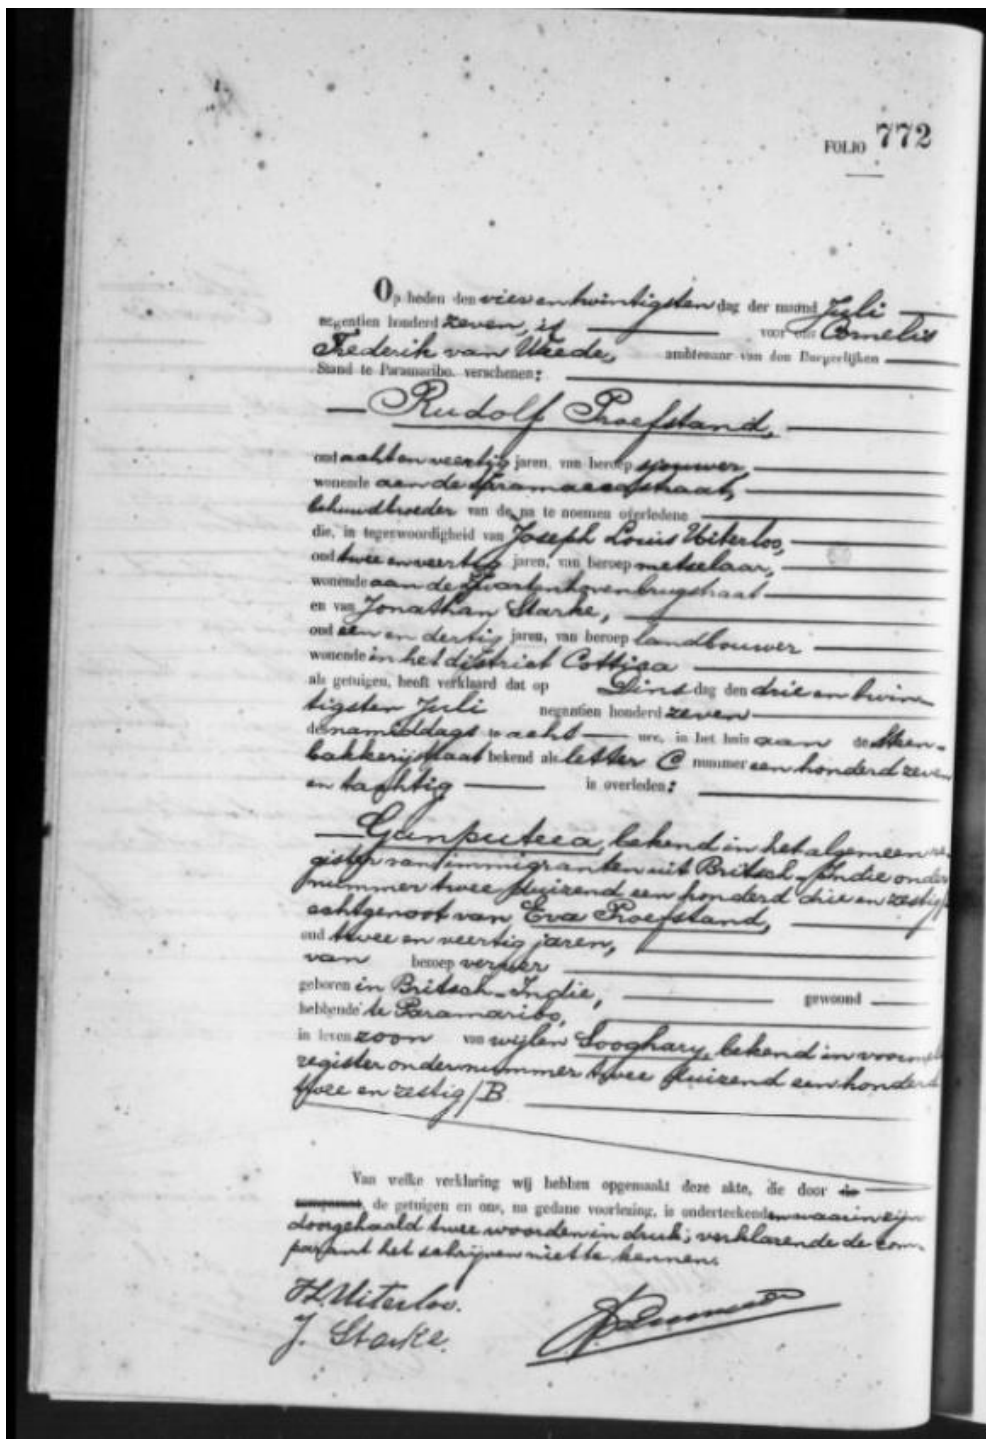 FOLIO 772
Op heden den vier en twintigsten dag der maand Juli
negentien honderd zeven, is voor ons Cornelis
Frederik van Weede, ambtenaar van den Burgerlijken
Stand te Paramaribo, verschenen:
Rudolf Proefstand,
oud acht en veertig jaren, van beroep sjouwer
wonende aan de Saramaccastraat,
behuwdbroeder van de na te noemen overledene
die, in tegenwoordigheid van Joseph Louis Uiterloo,
oud twee en veertig jaren, van beroep metselaar,
wonende aan de Zwartenhovenbrugstraat
en van Jonathan Starke,
oud een en dertig jaren, van beroep landbouwer
wonende in het district Cottica
als getuigen, heeft verklaard dat op Dinsdag den drie en twin
tigsten Juli negentien honderd zeven
des namiddags te acht ure, in het huis aan de Steen-
bakkerijstraat bekend als letter C nummer een honderd zeven
en tachtig is overleden:
Gunputeea, bekend in het algemeen re-
gister van immigranten uit Britsch-Indie onder
nummer twee duizend een honderd drie en zestig/
echtgenoot van Eva Proefstand,
oud twee en veertig jaren,
van beroep verver
geboren in Britsch-Indie, gewoond
hebbende te Paramaribo,
in leven zoon van wijlen Sooghary, bekend in voorm
register onder nummer twee duizend een honderd
twee en zestig/B
Van welke verklaring wij hebben opgemaakt deze akte, die door de
comparant, de getuigen en ons, na gedane voorlezing, is onderteekend en waarin zijn
doorgehaald twee woorden in druk; verklarende de com-
parant het schrijven niet te kennen.
JL Uiterloo.
J. Starke.